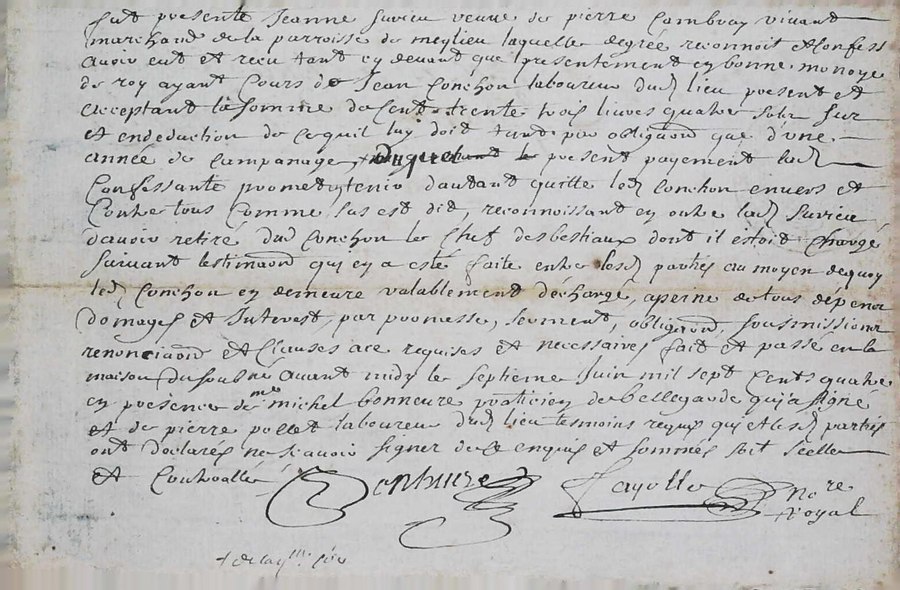 fut presente Jeanne Survieu veuve de pierre Cambray vivant
marchand de la parroisse de meylieu laquelle de gree reconnoit et Confess
avoir eut et receu tant cy devant que presentement en bonne monoye
de roy ayant Cours de Jean Conchon laboureur dud lieu present et
acceptant la somme de Cent trente trois livres quatre sols sur
et en deduction de ce quil luy doit tant par obligaond que d'une
année de Campanage, duquel present payement lad
Confessante promet tenir d'autant quitte led Conchon envers et
Contre tous Comme sus est dit, reconnoissant en outre lad Survieu
d'avoir retiré dud Conchon le Chef des bestiaux dont il estoit Chargé
suivant lestimaond qui en a esté faite entre lesd parties au moyen dequoy
led Conchon en demeure valablement déchargé, a peine de tous dépens
domages et Interest, par promesse, serment, obligaond, sousmissions
renonciaond et Clauses a ce requises et necessaires fait et passé en la
maison du soubne avant midy le septieme Juin mil sept Cents quatre
en presence de me michel bonneure praticien de bellegarde qui a signé
et de pierre pollet laboureur dud lieu tesmoins requis qui et lesd parties
ont déclarés ne scavoir signer de ce enquis et sommés soit scellé
et Controallé
Bonheure Fayolle Nore
royal